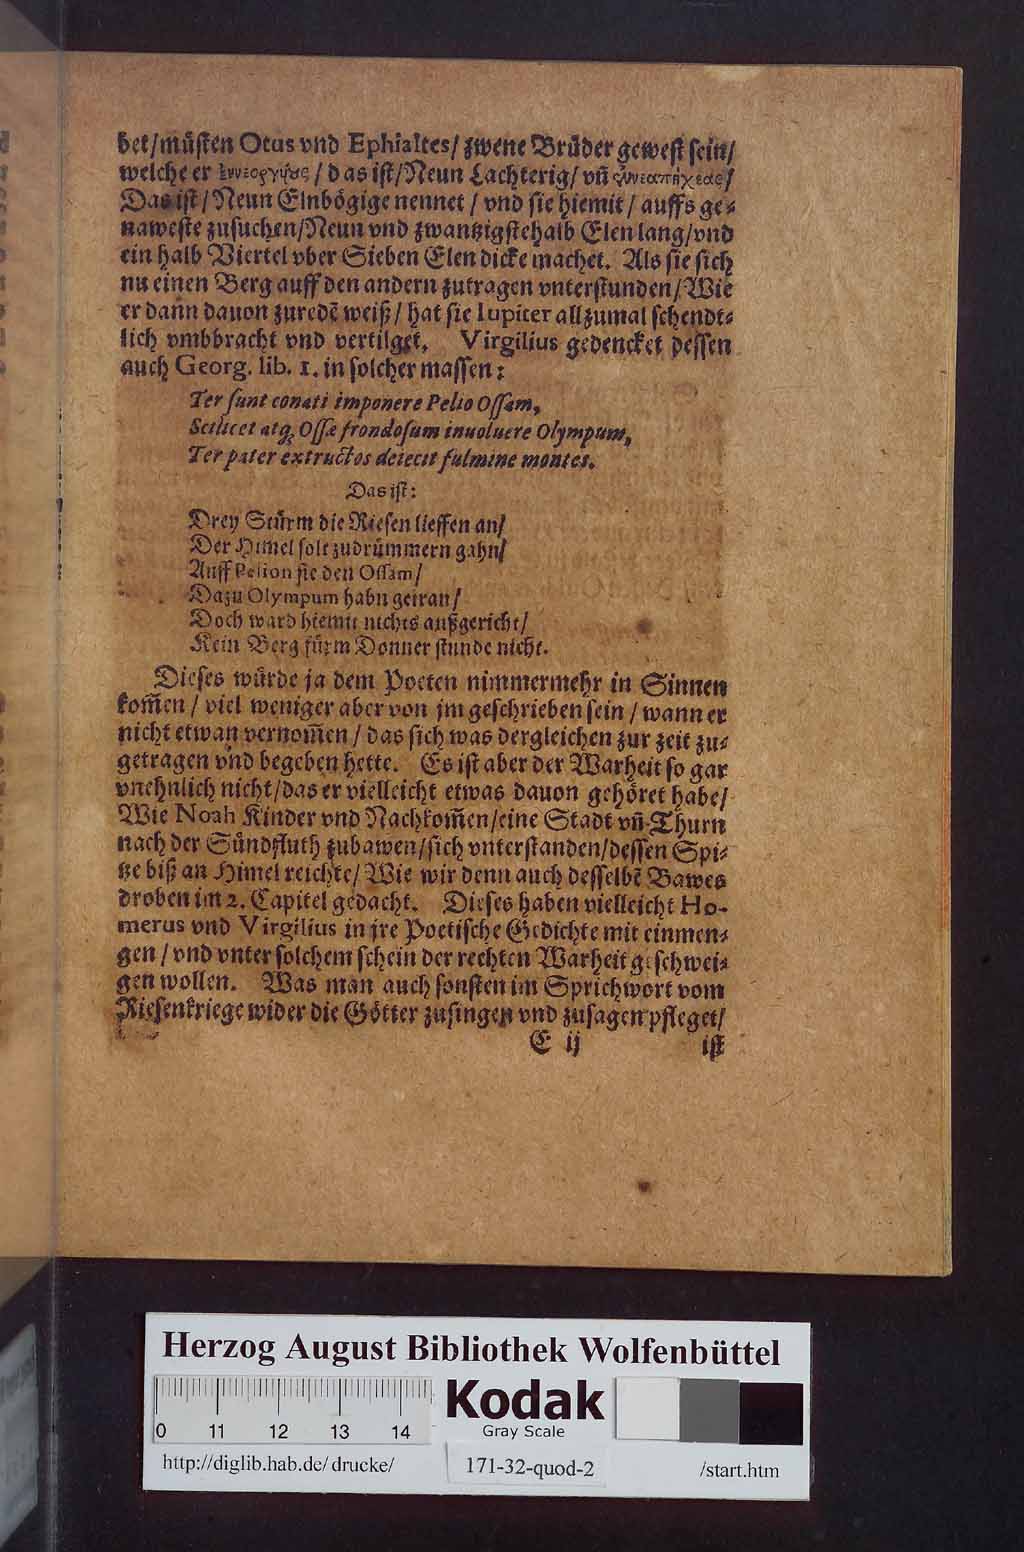 bet/müſten Otus vnd Ephialtes/ zwene Brüder geweſt ſein/
welche er ἐννεοργυιους / das iſt/Neun Lachterig/ vñ ἐννεαπήχεας/
Das iſt/ Neun Elnbögige nennet / vnd ſie hiemit/ auffs ge⸗
naweſte zuſuchen/Neun vnd zwantzigſtehalb Elen lang/vnd
ein halb Viertel vber Sieben Elen dicke machet. Als ſie ſich
nu einen Berg auff den andern zutragen vnterſtunden/ Wie
er dann dauon zuredẽ weiß/ hat ſie Iupiter allzumal ſchendt⸗
lich vmbbracht vnd vertilget. Virgilius gedencket deſſen
auch Georg. lib. 1. in ſolcher maſſen:
Ter ſunt conati imponere Pelio Oſſam,
Scilicet atq; Oſſæ frondoſum inuoluere Olympum,
Ter pater extructos deiecit fulmine montes.
Das iſt:
Drey Stürm die Rieſen lieffen an/
Der Himel ſolt zudrümmern gahn/
Auff Pelion ſie den Oſſam/
Dazu Olympum habn getran/
Doch ward hiemit nichts außgericht/
Kein Berg fürm Donner ſtunde nicht.
Dieſes würde ja dem Poeten nimmermehr in Sinnen
kom̃en / viel weniger aber von jm geſchrieben ſein / wann er
nicht etwan vernom̃en / das ſich was dergleichen zur zeit zu⸗
getragen vnd begeben hette. Es iſt aber der Warheit ſo gar
vnehnlich nicht/das er vielleicht etwas dauon gehöret habe/
Wie Noah Kinder vnd Nachkom̃en/eine Stadt vñ Thurn
nach der Sündfluth zubawen/ſich vnterſtanden/deſſen Spi⸗
tze biß an Himel reichte/ Wie wir denn auch deſſelbẽ Bawes
droben im 2. Capitel gedacht. Dieſes haben vielleicht Ho-
merus vnd Virgilius in jre Poetiſche Gedichte mit einmen⸗
gen / vnd vnter ſolchem ſchein der rechten Warheit geſchwei⸗
gen wollen. Was man auch ſonſten im Sprichwort vom
Rieſenkriege wider die Götter zuſingen vnd zuſagen pfleget/
E ij iſt
Herzog August Bibliothek Wolfenbüttel
Kodak
Gray Scale
0 11 12 13 14
http://diglib.hab.de/drucke/ 171-32-quod-2 /start.htm